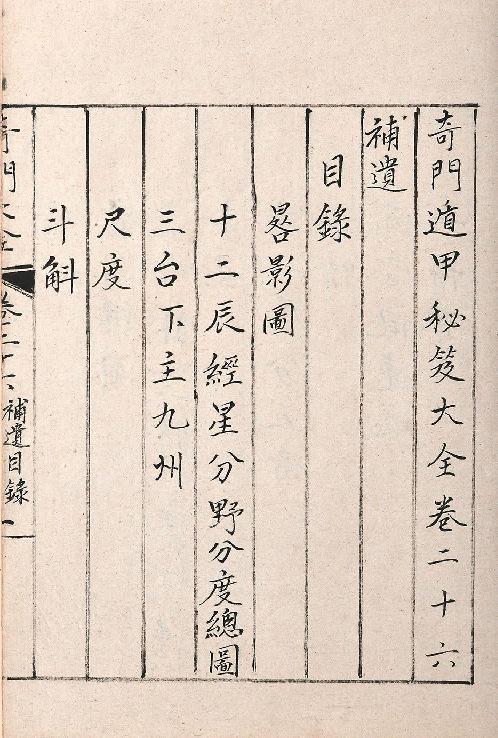 奇門遁甲秘笈大全卷二十六
補遺
目錄
晷影圖
十二辰經星分野分度總圖
三台下主九州
尺度
斗斛
奇門大全 卷二十六 補遺目錄 一